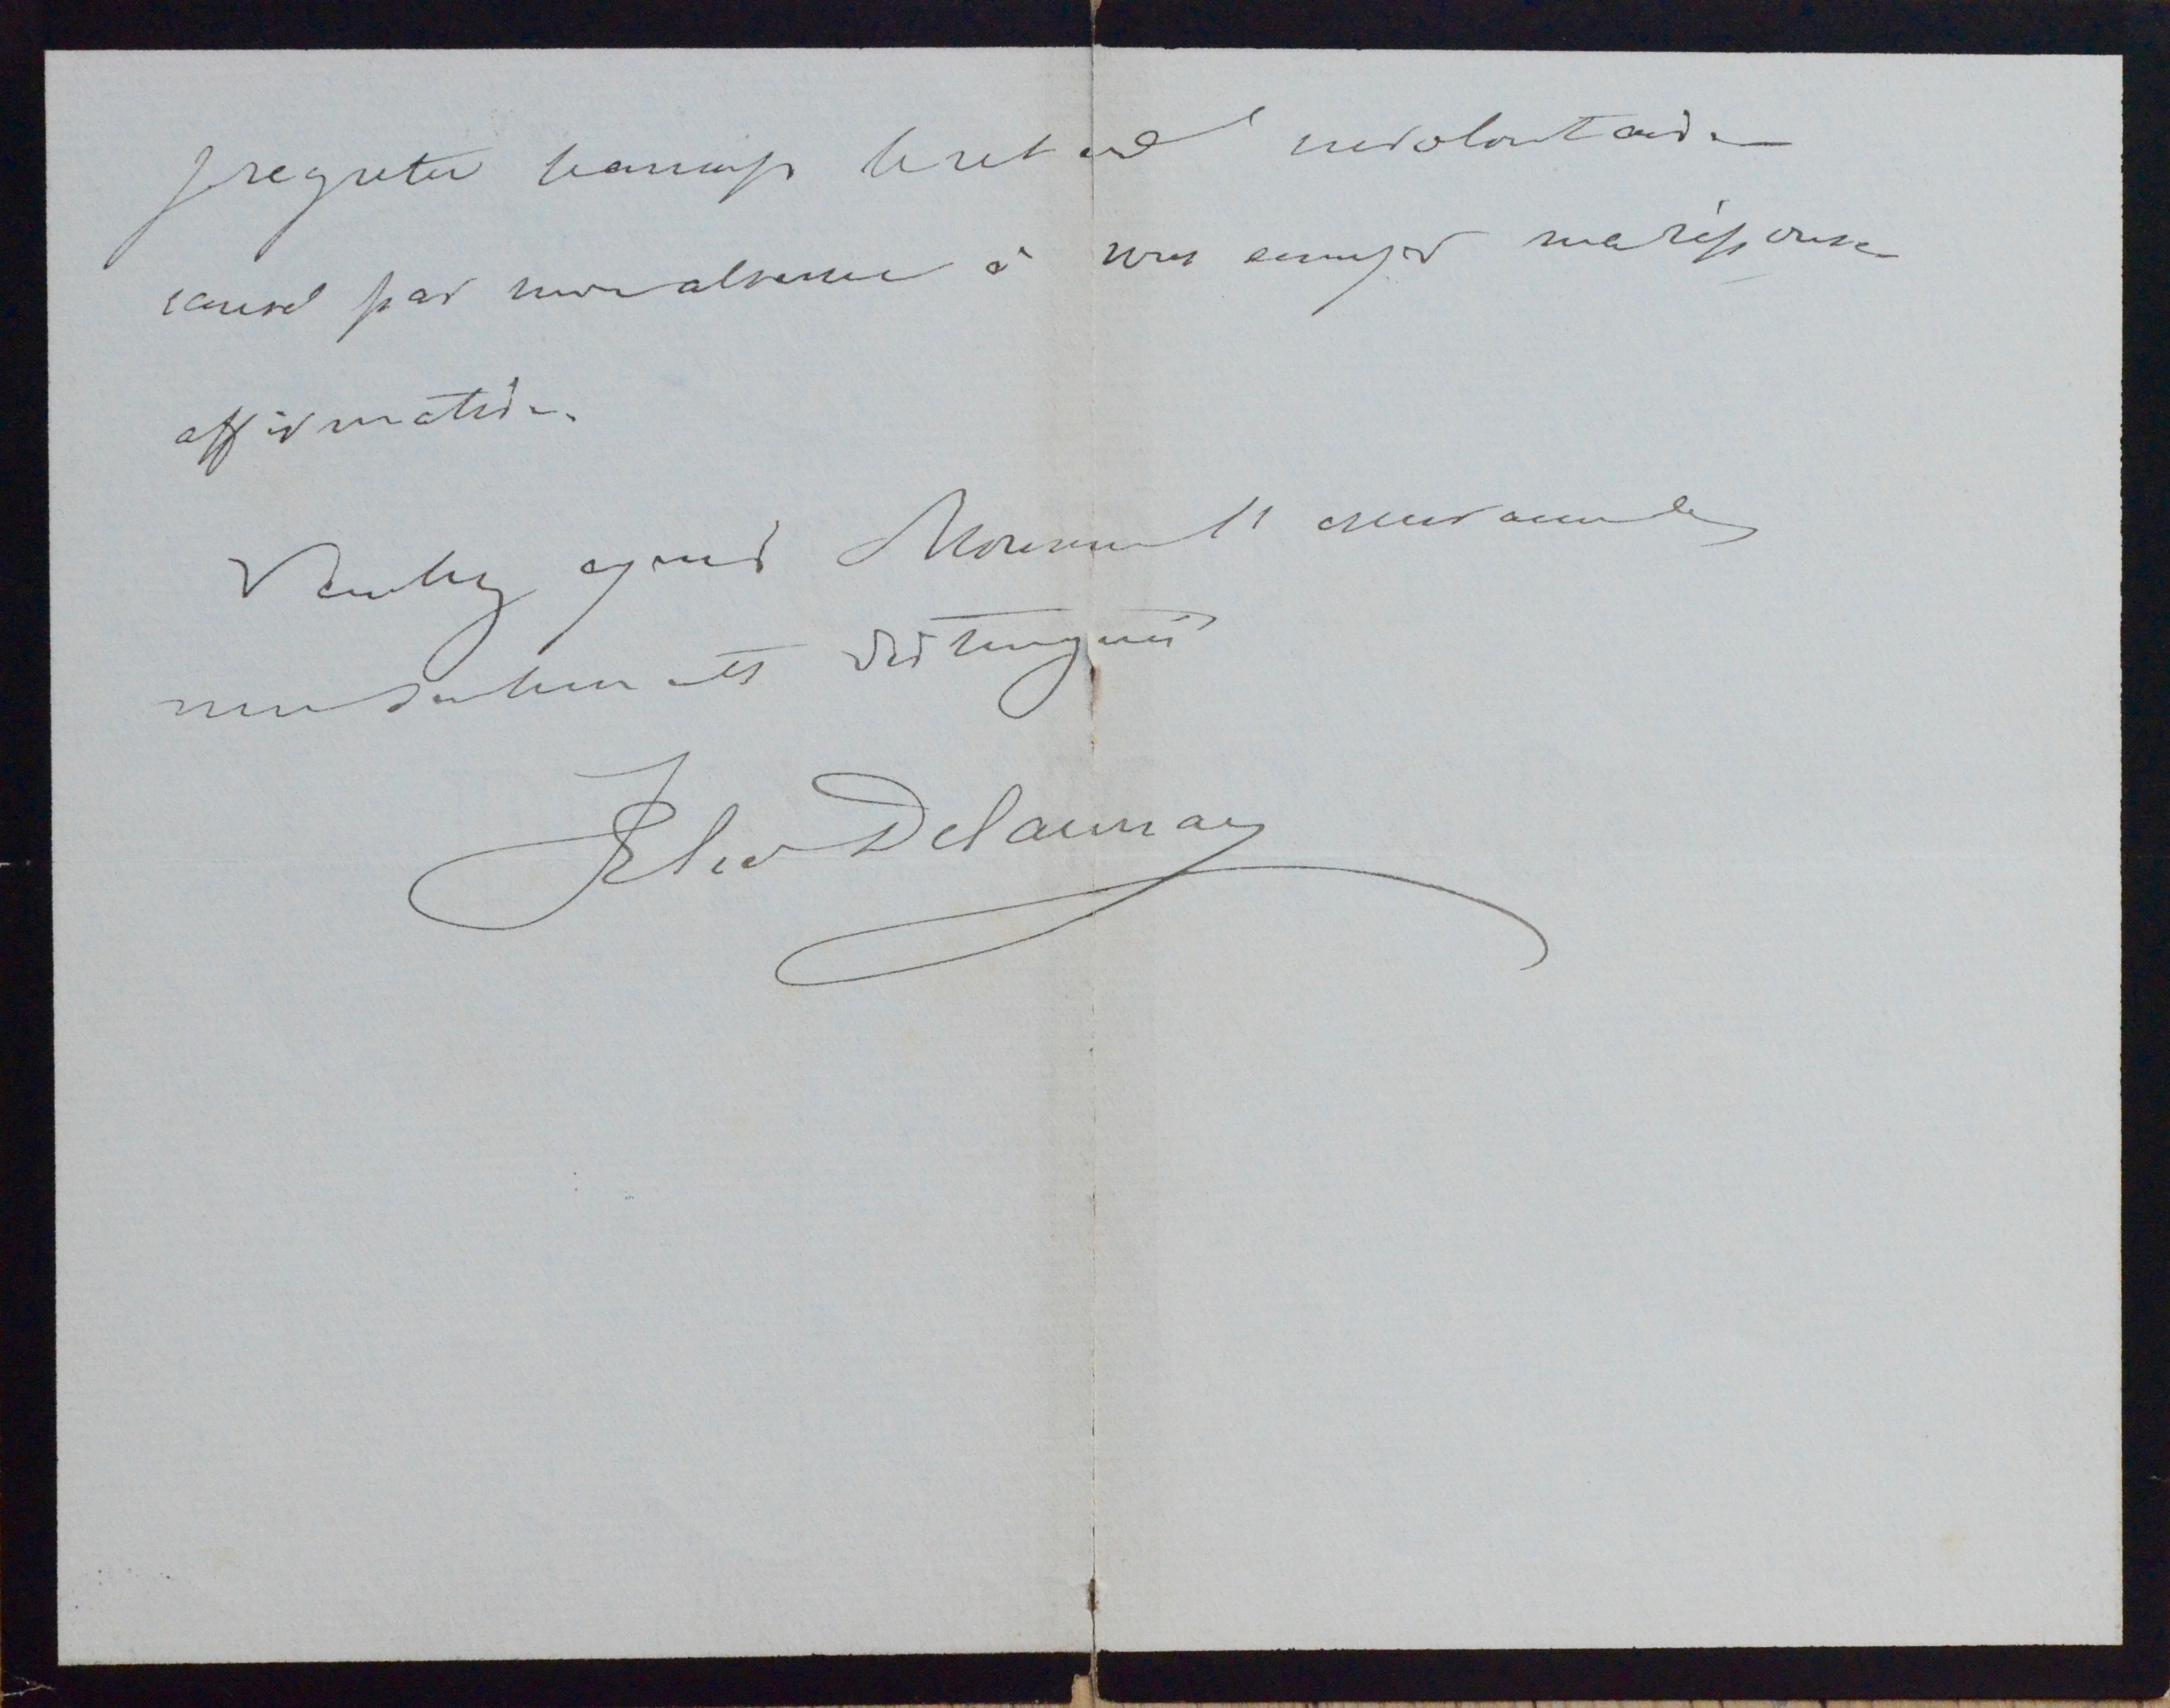 Je regrette beaucoup le retard involontaire
causé par mon absence à vous envoyer ma réponse
affirmative.
Veuillez agréer Monsieur l'assurance de
mes sentiments distingués
Elie Delaunay